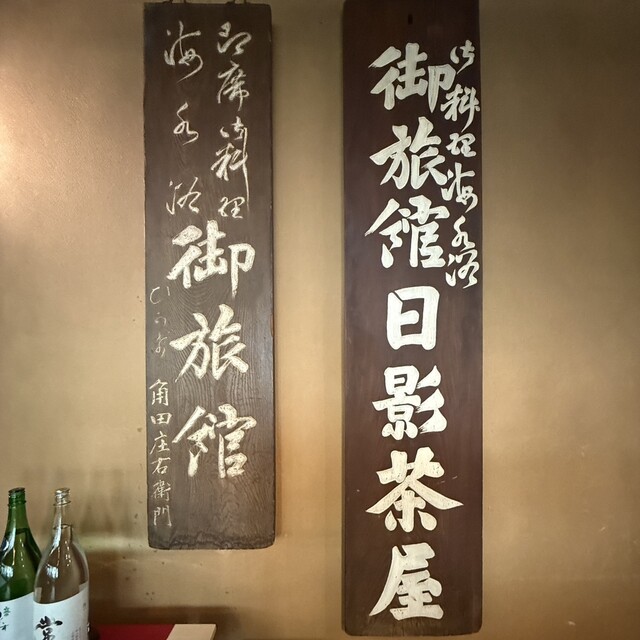 御料理海水浴
御旅館日影茶屋
即席御料理
海水浴
御旅館
角田庄右衛門